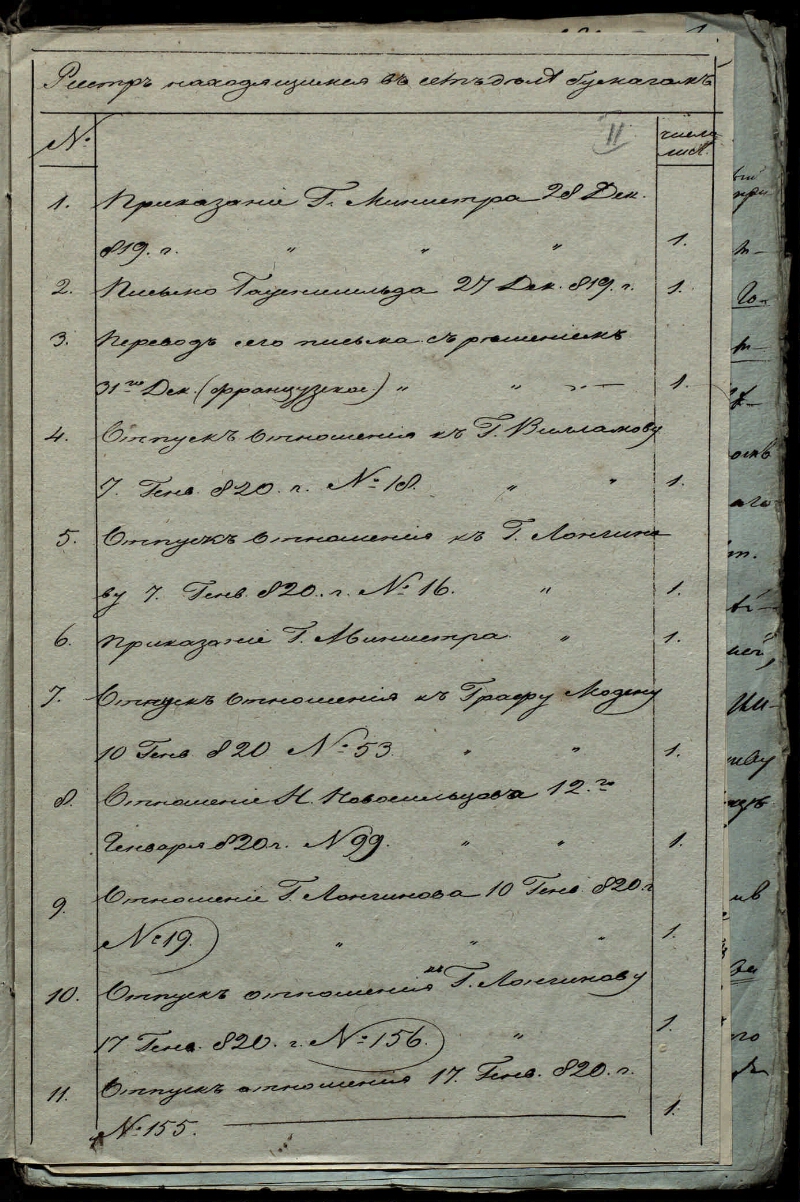 Реестръ находящимся въ семъ дѣлѣ бумагамъ
№.
II
число
лист.
1. Приказаніе Г. Министра 28 Дек.
819. г. " " " 1.
2. Письмо Гауеншильда 27 Дек. 819. г. 1.
3. Переводъ сего письма съ рѣшеніемъ
31го Дек. (французское) " " " — 1.
4. Отпускъ отношенія къ Г. Вилламову
7. Генв. 820. г. № 18. " " 1.
5. Отпускъ отношенія къ Г. Лонгино
ву 7. Генв. 820. г. № 16. " 1.
6. Приказаніе Г. Министра " 1.
7. Отпускъ отношенія къ Графу Модену
10 Генв. 820 № 53. " " 1.
8. Отношеніе Н. Новосильцова 12.го
Генваря 820 г. № 99. " " 1.
9. Отношеніе Г. Лонгинова 10 Генв. 820. г
№ 19. " " " 1.
10. Отпускъ отношенія къ Г. Лонгинову
17 Генв. 820. г. № 156. " 1.
11. Отпускъ отношенія 17. Генв. 820. г.
№ 155. 1.